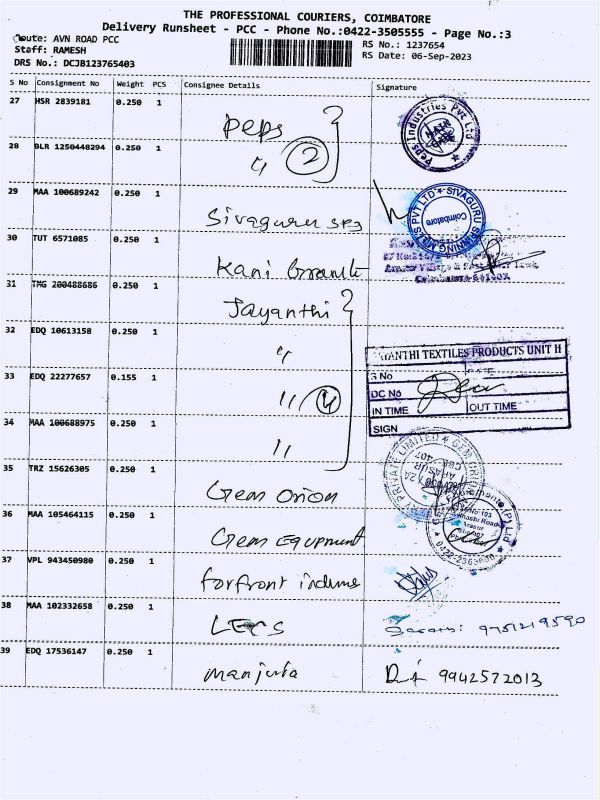 THE PROFESSIONAL COURIERS, COIMBATORE
Delivery Runsheet - PCC - Phone No.:0422-3505555 - Page No.:3
Route: AVN ROAD PCC
RS No.: 1237654
Staff: RAMESH
RS Date: 06-Sep-2023
DRS No.: DCJB123765403
S No Consignment No Weight PCS Consignee Details Signature
27 HSR 2839181 0.250 1 Peps
Peps Industries Pvt Ltd
28 BLR 1250448294 0.250 1 " 2
29 MAA 100689242 0.250 1 Sivaguru
SIVAGURU SPINNING MILLS PVT LTD
Coimbatore
30 TUT 6571085 0.250 1 Kani
31 TMG 200488686 0.250 1 Jayanthi
32 EDQ 10613158 0.250 1 "
33 EDQ 22277657 0.155 1 " 4
ANTHI TEXTILES PRODUCTS UNIT II
S No
DC No
IN TIME OUT TIME
SIGN
34 MAA 100688975 0.250 1 "
35 TRZ 15626305 0.250 1 Gem Orion
PRIVATE LIMITED
36 MAA 105464115 0.250 1 Gem Equpment
37 VPL 943450980 0.250 1 forfront
38 MAA 102332658 0.250 1 9751219590
39 EDQ 17536147 0.250 1 Manjula 9942572013